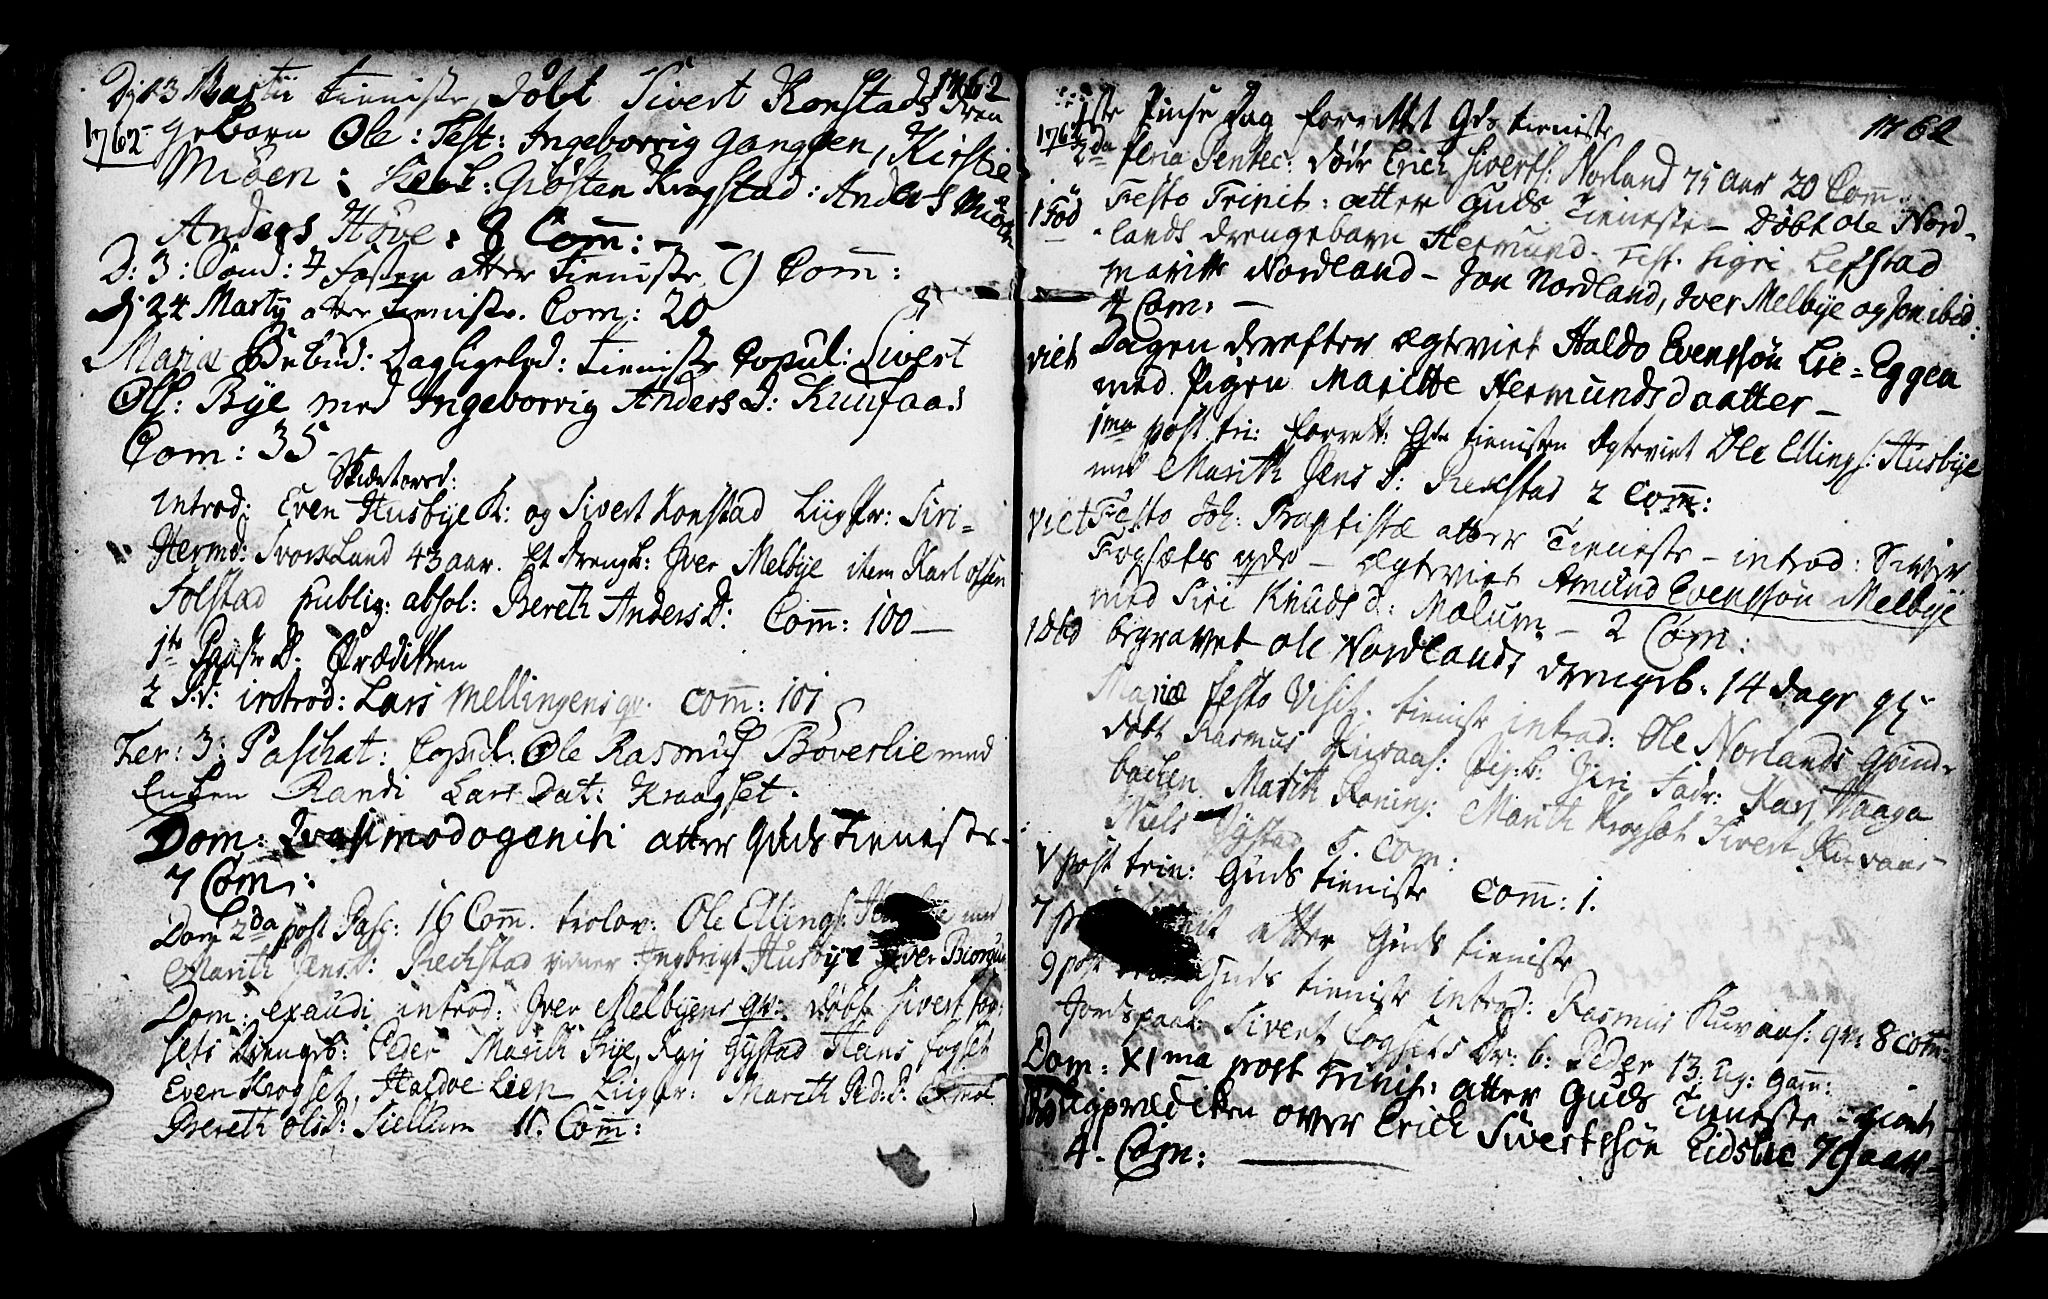 1762
D: 13 Martii tieniste, Døbt Sivert Konstads Dren
1762 gebarn Ole: Test: Ingeborrig gangaen, Kirstie
Miöen: Giösten Krogstad: Anders Miöen
Anders Höve: 8 Com: - -
D: 3: Sönd: i fasten atter Tieniste 9 Com:
D: 24 Martij atter tieniste. Com: 20
Mariæ Bebud: Dagligebed: tieniste Copul: Sivert
Ols: Bije med Ingeborrig Anders D: Kuufaas
Com: 35
Skiærtorsd:
introd: Even Husbye K: og Sivert Konstad Liigpr: Siri
Hermd: Svorkland 43 aar. Et drengb: Iver Melbije item Karl Olsen
Solstad publiq: absol: Bereth Anders D: Comm: 100 —
1te Paaske D: Prædikken
2 D: introd: Lars Mellingens qv. Comm: 101
Fer: 3: Paschat: Copul: Ole Rasmus Böverlie med
Enken Randi Lars Dat: Kraagset.
Dom: Quasimodogeniti atter Guds Tieniste -
7 Com:
Dom 2da post Pasc: 16 Comm. trolov: Ole Ellings: med
Marith Jens D: Reckstad Ingbrigt Husbije Iver Biörnu
Dom: exaudi introd: Iver Melbyens qv: døbt Sivert fog:
sets drengeb: Peder Marith Bije, Karj Gystad Hans fogset
Even Krogset, Haldoe Lien Liigpr: Marith Ped: D:
Bereth Olsd: Siellum 11. Comm:
1762
1ste Pinse Dag forrettet Gds tieniste
1762 2da feria Pentec: döde Erich Siverts: Norland 75 Aar 20 Com:
1 Föd Festo Trinit: atter Guds Tieneste - Døbt Ole Nord-
lands drengebarn Hermund. Test. Sigri Lefstad
Maritte Nordland - Jon Nordland, Iver Melbije og Jon ibid:
4 Com: —
viet Dagen derefter ægteviet Haldo Evenssøn Lie-Eggen
med Pigen Maritte Hermundsdaatter -
1ma post tri: forrett: Gds tienisten Ægteviet Ole Ellings: Husbije
med Marith Jens D: Reckstad 2 Comm:
viet Festo Joh: Baptistæ atter Tieneste - introd: Sivert
Fogsets qde - Ægteviet Amund Evenssøn Melbije
med Siri Knuds d: Mælum - 2 Com:
1 død begravet Ole Nordlands drengeb: 14 dage gl-
Mariæ festo Visit. tieniste introd: Ole Norlands qvinde
døbt Rasmus Kuvaas: Pig:b: Giri Fadr: Karj Haaga
backen Marith Koning: Marith Krogset Sivert Kuvaas
Niels Gystad 5 Com:
V post trin: Guds tieniste Comm: 1.
7 atter Guds tieniste
9 post Guds tieniste introd: Rasmus Kuvaas: qv: 8 Com:
Jordspaak: Sivert fogsets Dr: b: Peder 13. Ug: gam:
Dom: XIma post Trinit: atter Guds Tieneste -
Liigprædiken over Erich Sivertssøn Eidslie 79 aar -
4. Com: —